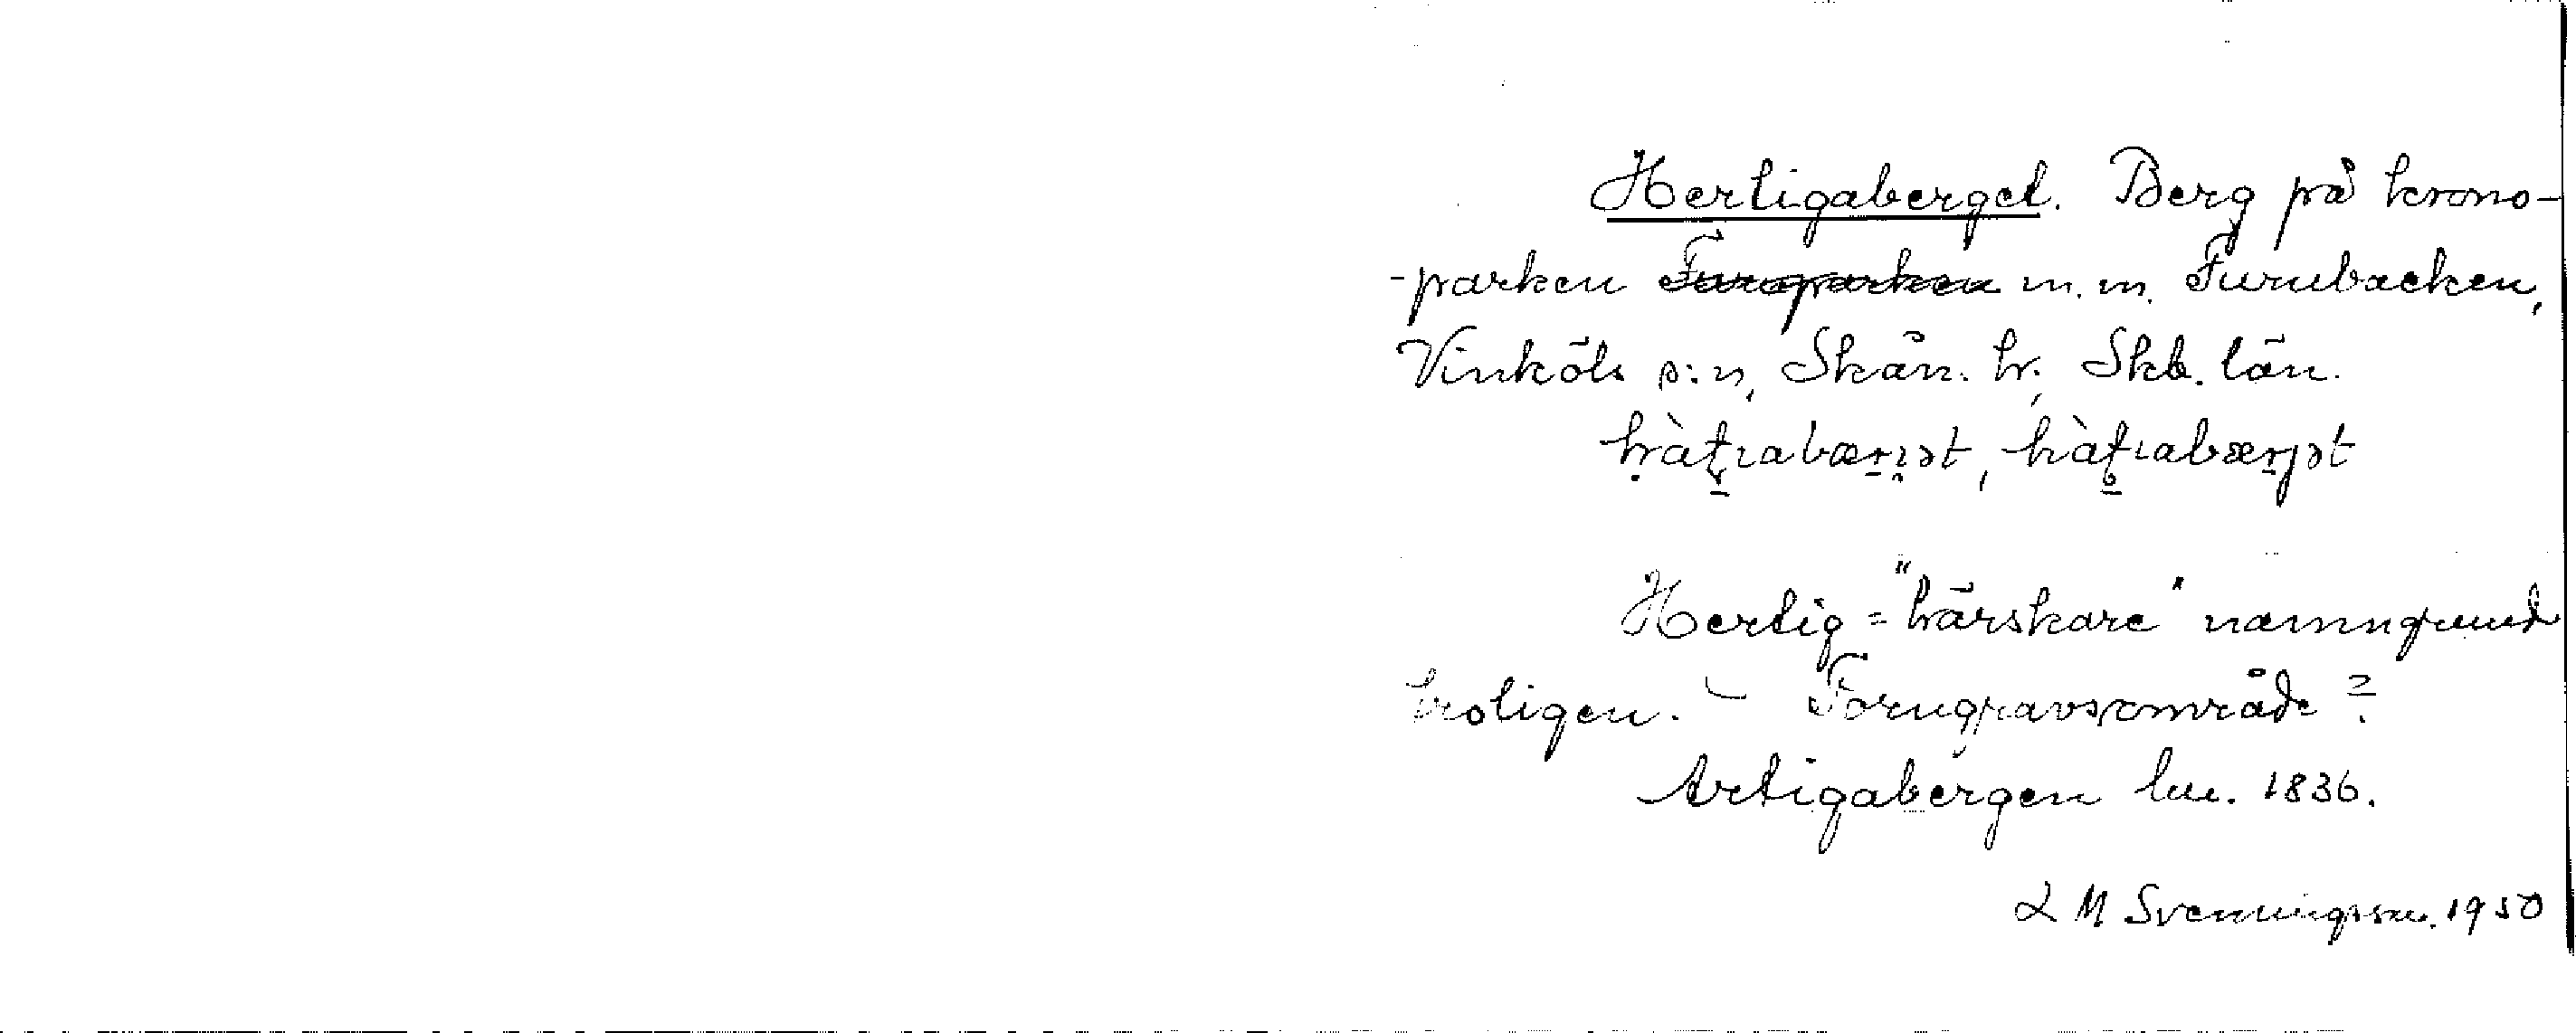 Hertigaberget. Berg på krono-
-parken Furuparken m.m. Furubacken,
Vinköls s:n, Skån. hr. Skb. län.
hàt̠ıabær̠ı̠ət, hàt̠ıabær̠jət
Hertig = "härskare" namngrund
troligen. – Forngravsområde?
Artigabergen lm. 1836.
L M Svenningsson. 1950